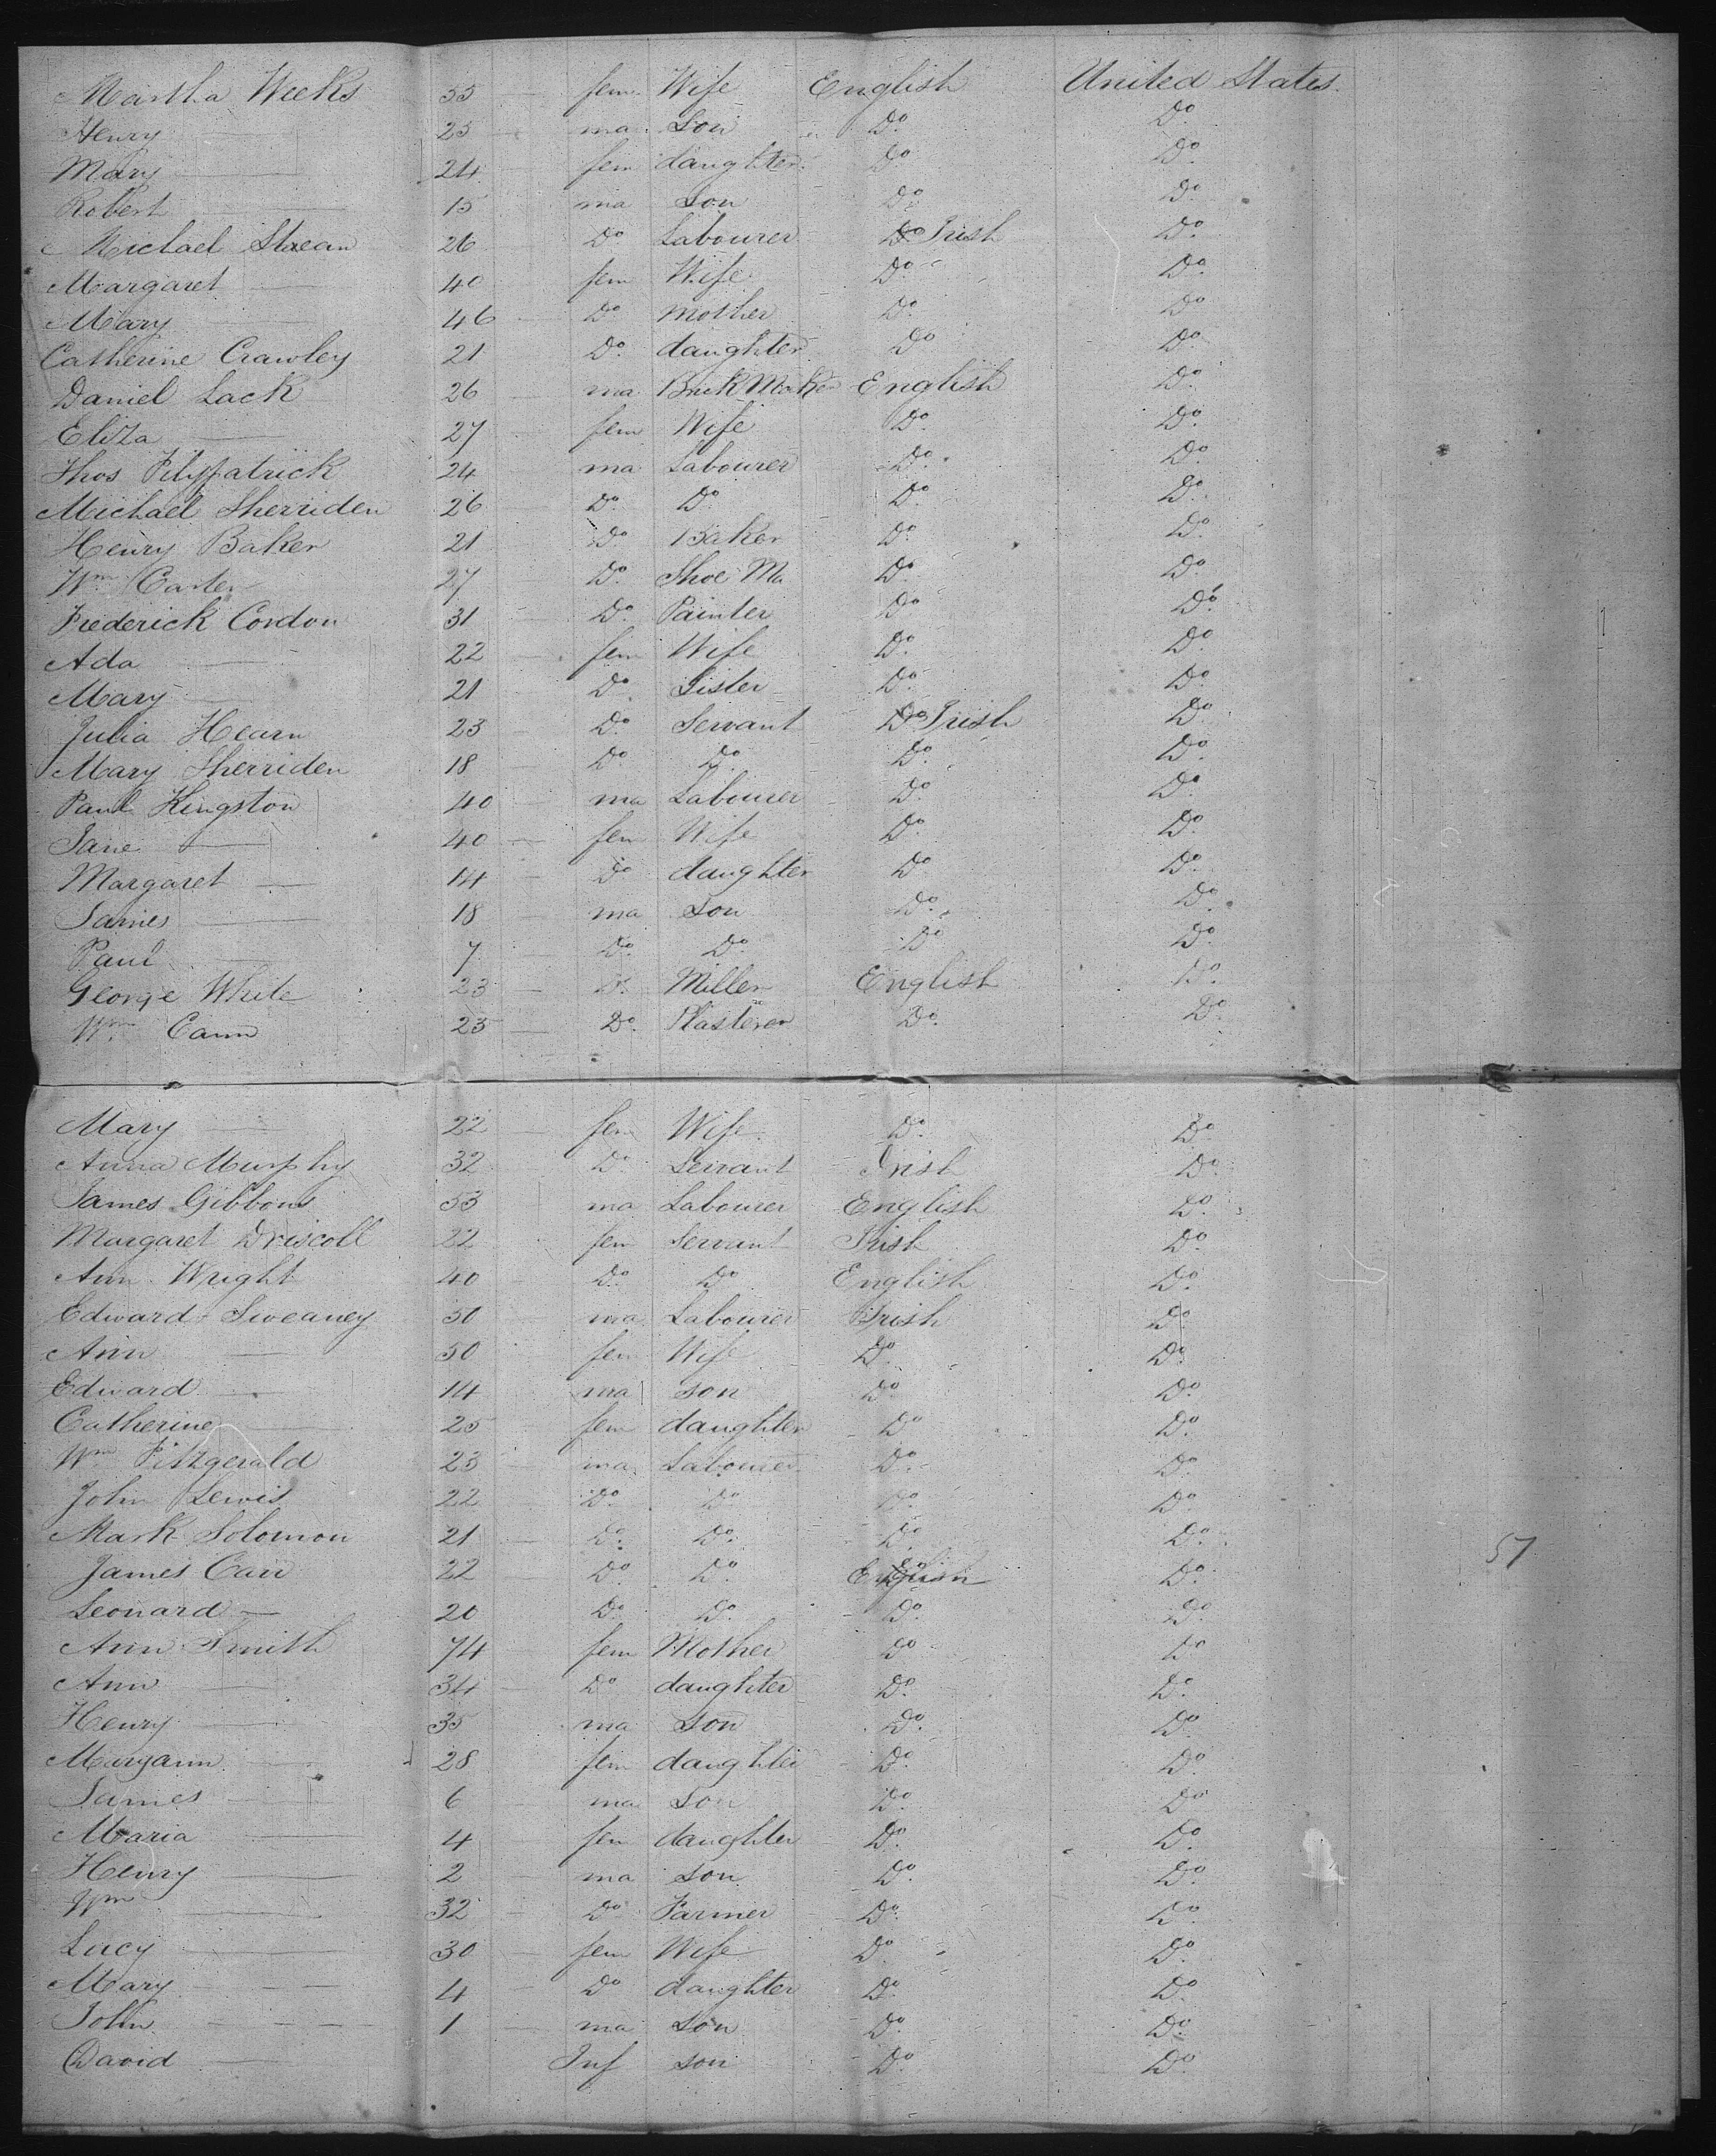 Martha Weeks 55 fem Wife English United States.
Henry — 25 ma Son Do Do
Mary — 24 fem daughter Do Do
Robert — 15 ma Son Do Do
Michael Skean 26 Do Labourer Do Irish Do
Margaret — 40 fem Wife Do Do
Mary — 46 Do Mother Do Do
Catherine Crawley 21 Do daughter Do Do
Daniel Lack 26 ma Brick Maker English Do
Eliza — 27 fem Wife Do Do
Thos Fitzpatrick 24 ma Labourer Do Do
Michael Sherriden 26 Do Do Do Do
Henry Baker 21 Do Baker Do Do
Wm Carter 27 Do Shoe Ma Do Do
Frederick Cordon 31 Do Painter Do Do
Ada — 22 fem Wife Do Do
Mary — 21 Do Sister Do Do
Julia Hearn 23 Do Servant Do Irish Do
Mary Sherriden 18 Do Do Do Do
Paul Kingston 40 ma Labourer Do Do
Jane — 40 fem Wife Do Do
Margaret — 14 Do daughter Do Do
James — 18 ma Son Do Do
Paul — 7 Do Do Do Do
George White 23 Do Miller English Do
Wm Cann 25 Do Plasterer Do Do
Mary — 22 fem Wife Do Do
Anna Murphy 32 Do Servant Irish Do
James Gibbons 53 ma Labourer English Do
Margaret Driscoll 22 fem Servant Irish Do
Ann Wright 40 Do Do English Do
Edward Sweaney 50 ma Labourer Irish Do
Ann — 50 fem Wife Do Do
Edward — 14 ma son Do Do
Catherine — 25 fem daughter Do Do
Wm Fitzgerald 23 ma Labourer Do Do
John Lewis 22 Do Do Do Do
Mark Solomon 21 Do Do Do Do
James Carr 22 Do Do English Do
57
Leonard — 20 Do Do Do Do
Ann Smith 74 fem Mother Do Do
Ann — 34 Do daughter Do Do
Henry — 35 ma Son Do Do
Maryann — 28 fem daughter Do Do
James — 6 ma Son Do Do
Maria — 4 fem daughter Do Do
Henry — 2 ma son Do Do
Wm — 32 Do Farmer Do Do
Lucy — 30 fem Wife Do Do
Mary — 4 Do daughter Do Do
John — 1 ma Son Do Do
David — Inf son Do Do